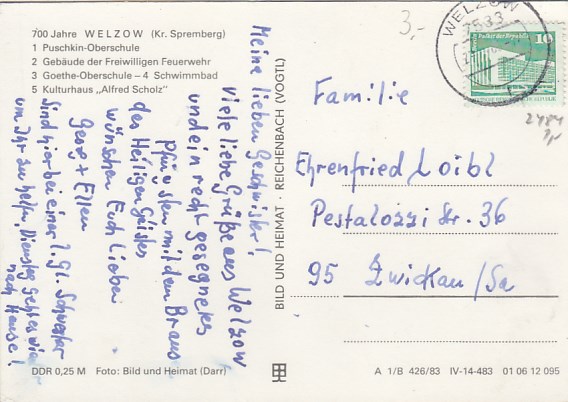 700 Jahre WELZOW (Kr. Spremberg)
1 Puschkin-Oberschule
2 Gebäude der Freiwilligen Feuerwehr
3 Goethe-Oberschule – 4 Schwimmbad
5 Kulturhaus „Alfred Scholz"
Meine lieben Geschwister!
Viele liebe Grüße aus Welzow
und ein recht gesegnetes
Pfingsten mit dem Braus
des Heiligen Geistes
wünschen Euch Lieben
Georg + Ellen
Sind hier bei einer l. gl. Schwester
um Ihr zu helfen, Dienstag geht es wieder
nach Hause!
DDR 0,25 M Foto: Bild und Heimat (Darr)
BILD UND HEIMAT · REICHENBACH (VOGTL)
3,-
WELZOW
7533
10
2484
Familie
Ehrenfried Loibl
Pestalozzi Str. 36
95 Zwickau/Sa
A 1/B 426/83 IV-14-483 01 06 12 095